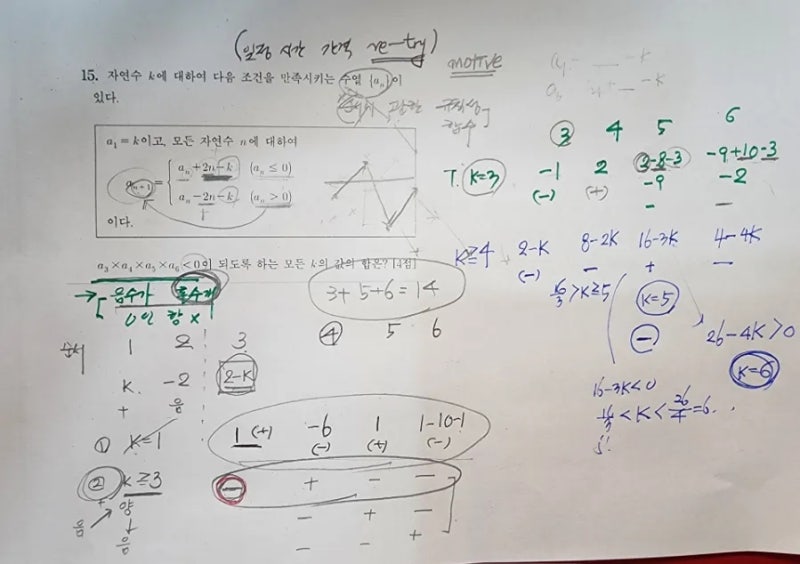 (일정 시간 간격 re-try)
motive
15. 자연수 k에 대하여 다음 조건을 만족시키는 수열 {aₙ}이
있다.
규칙성
함수
a₁=k이고, 모든 자연수 n에 대하여
aₙ₊₁= { aₙ+2n-k (aₙ≤0)
aₙ-2n-k (aₙ>0)
이다.
a₃×a₄×a₅×a₆<0이 되도록 하는 모든 k의 값의 합은? [4점]
→ 음수가 홀수개
0인 항 x
3+5+6=14
1 2 3 ④ 5 6
k -2 2-k
+ 음
① k=1 1 (+) -6 (-) 1 (+) 1-10-1 (-)
② k≥3 - + - -
양 - + -
음 음 - - +
③ 4 5 6
k=3 -1 2 3-8-3 -9+10-3
(-) (+) -9 -2
- -
k≥4 2-k 8-2k 16-3k 4-4k
(-) - + -
16/3>k≥5 k=5
- 26-4k>0
k=6
16-3k<0
16/3<k<26/4=6..